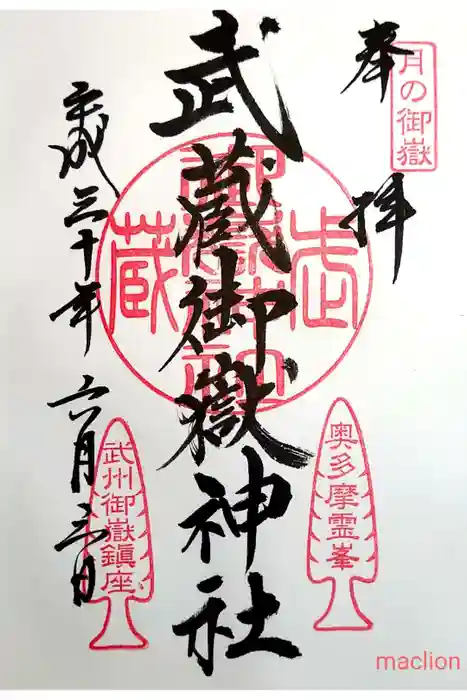 奉拝
月の御嶽
武蔵御嶽神社
武蔵
御嶽神社
奥多摩霊峯
平成三十年六月三日
武州御嶽鎮座
maclion